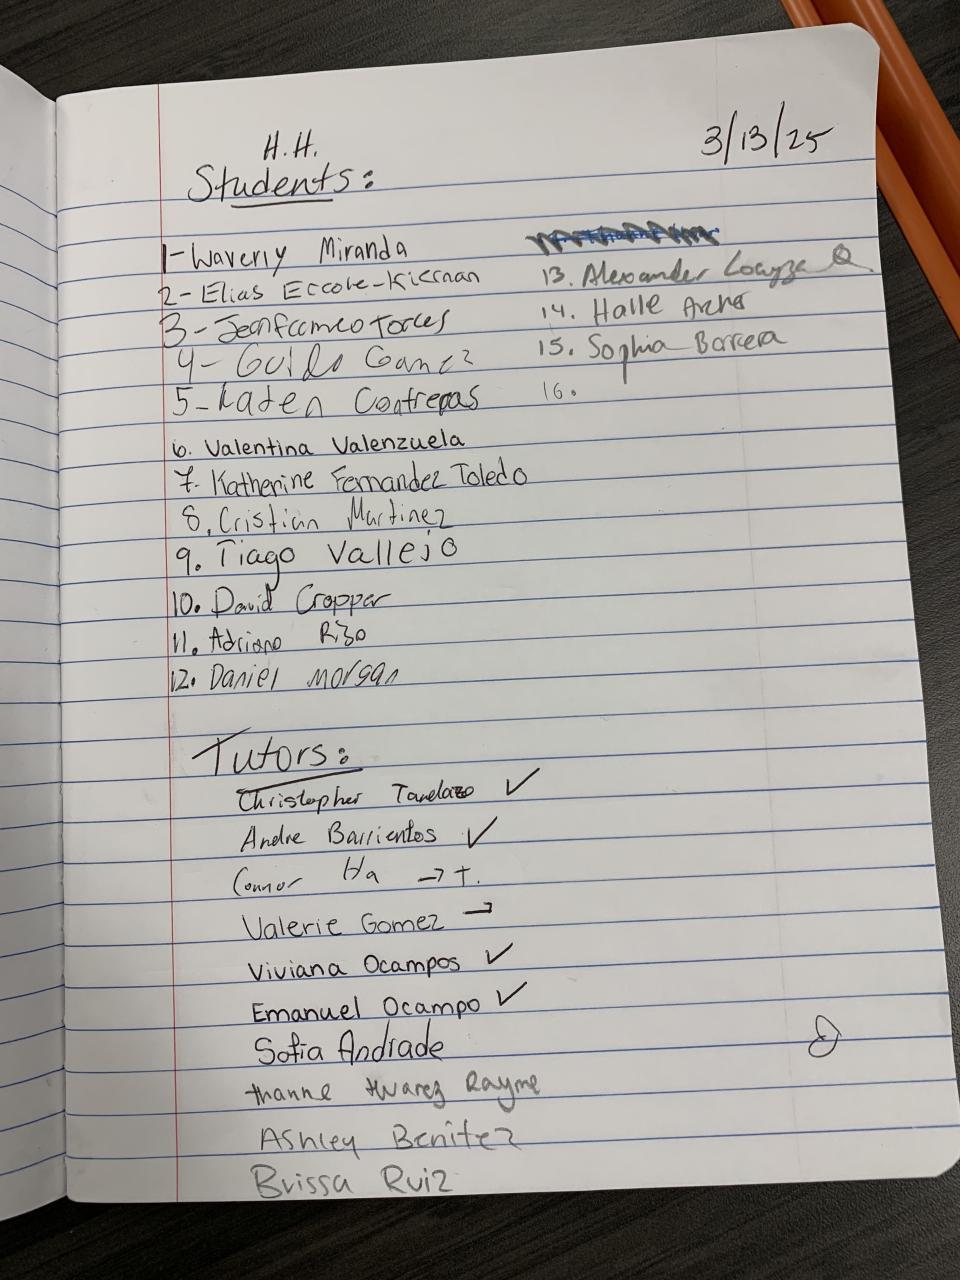 H.H.
3/13/25
Students:
1-Waverly Miranda
2-Elias Eccore-Kiernan
3-Torres
4-Guido Gamez
5-Kaden Contreras
6. Valentina Valenzuela
7. Katherine Fernandez Toledo
8. Cristian Martinez
9. Tiago Vallejo
10. David Cropper
11. Adriano Rizo
12. Daniel Morgan
13. Alexander Loayza Q.
14. Halle Archer
15. Sophia Barrera
16.
Tutors:
Christopher Tandazo ✓
Andre Barrientos ✓
Connor Ha → t.
Valerie Gomez →
Viviana Ocampos ✓
Emanuel Ocampo ✓
Sofia Andrade
Rayme
Ashley Benitez
Brissa Ruiz